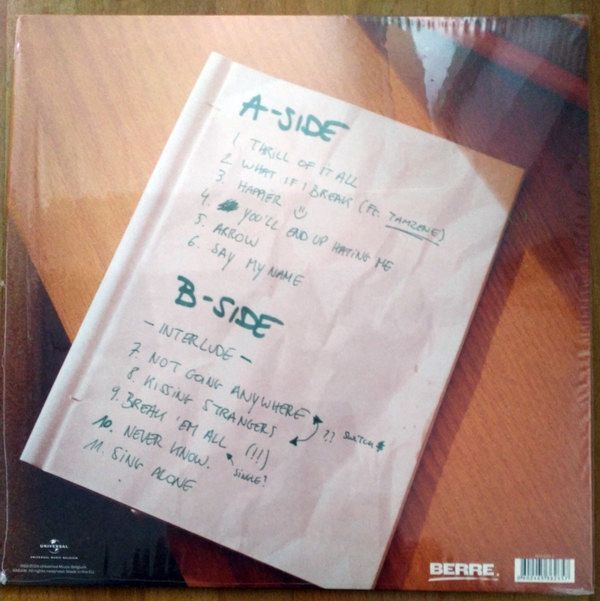 A-SIDE
1. THRILL OF IT ALL
2. WHAT IF I BREAK (FT. TAMZENE)
3. HAPPIER
4. YOU'LL END UP HATING ME
5. ARROW
6. SAY MY NAME
B-SIDE
- INTERLUDE -
7. NOT GOING ANYWHERE
8. KISSING STRANGERS
?? SWITCH
9. BREAK 'EM ALL (!!)
10. NEVER KNOW.
SINGLE?
11. SING ALONE
UNIVERSAL
UNIVERSAL MUSIC BELGIUM
BERRE.